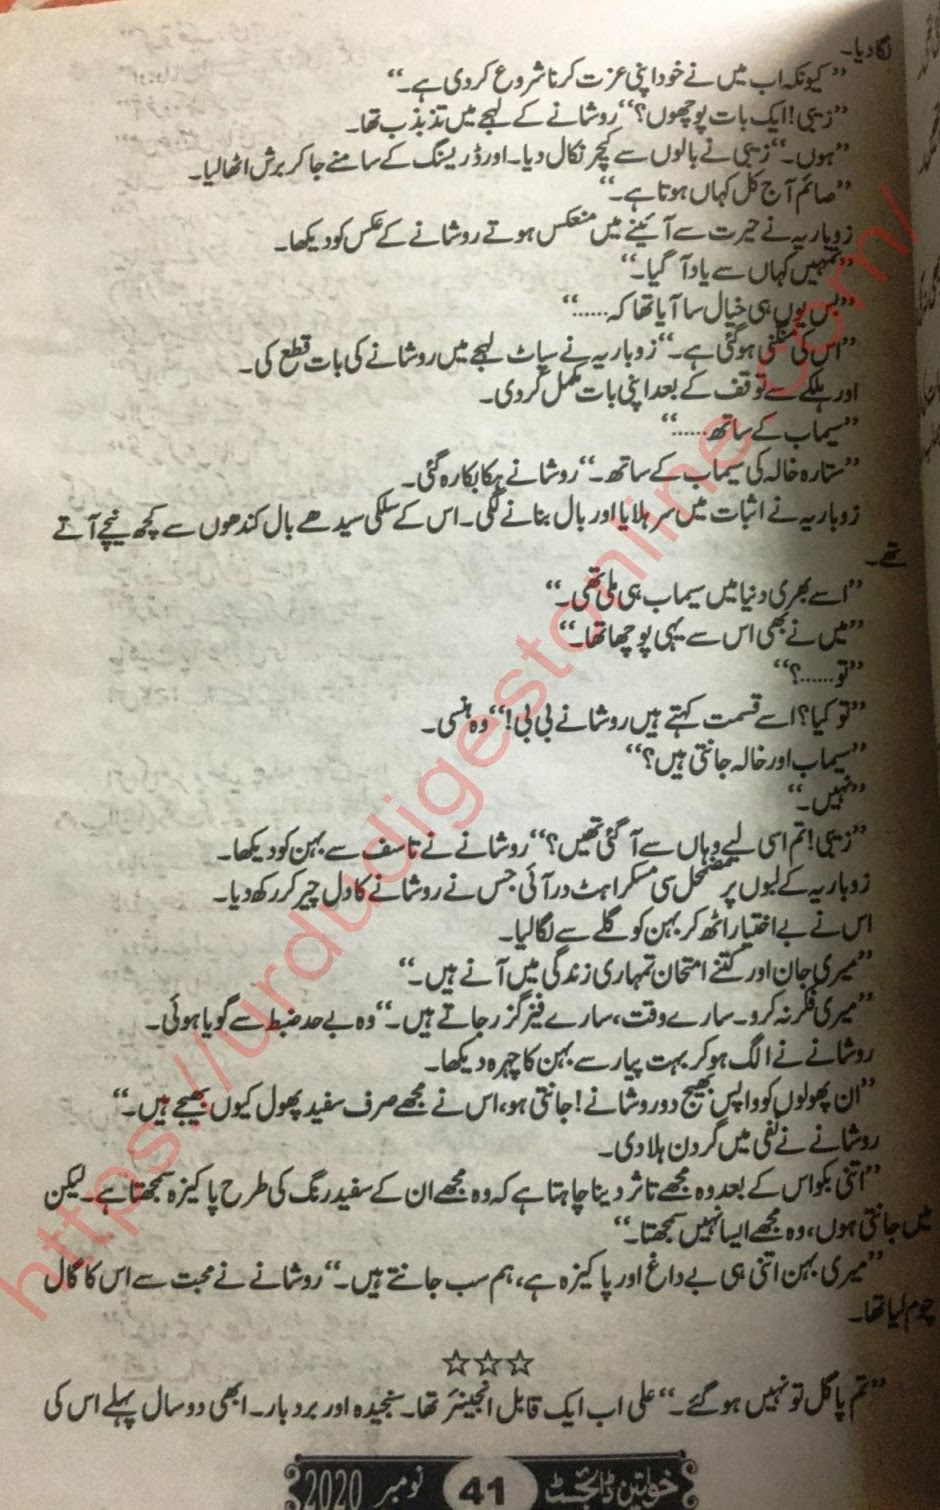 لگا دیا۔
”کیونکہ اب میں نے خود اپنی عزت کرنا شروع کر دی ہے۔“
”زیبی! ایک بات پوچھوں؟“ روشانے کے لہجے میں تذبذب تھا۔
”ہوں۔“ زیبی نے بالوں سے کیچر نکال دیا۔ اور ڈریسنگ کے سامنے جا کر برش اٹھا لیا۔
”صائم آج کل کہاں ہوتا ہے۔“
زوباریہ نے حیرت سے آئینے میں منعکس ہوتے روشانے کے عکس کو دیکھا۔
”تمہیں کہاں سے یاد آ گیا۔“
”بس یوں ہی خیال سا آیا تھا کہ……“
”اس کی منگنی ہو گئی ہے۔“ زوباریہ نے سپاٹ لہجے میں روشانے کی بات قطع کی۔
اور ہلکے سے توقف کے بعد اپنی بات مکمل کر دی۔
”سیماب کے ساتھ……“
”ستارہ خالہ کی سیماب کے ساتھ۔“ روشانے ہکا بکا رہ گئی۔
زوباریہ نے اثبات میں سر ہلایا اور بال بنانے لگی۔ اس کے سلکی سیدھے بال کندھوں سے کچھ نیچے آتے
تھے۔
”اسے بھری دنیا میں سیماب ہی ملی تھی۔“
”میں نے بھی اس سے یہی پوچھا تھا۔“
”تو……؟“
”تو کیا؟ اسے قسمت کہتے ہیں روشانے بی بی!“ وہ ہنسی۔
”سیماب اور خالہ جانتی ہیں؟“
”نہیں۔“
”زیبی! تم اسی لیے وہاں سے آ گئی تھیں؟“ روشانے نے تاسف سے بہن کو دیکھا۔
زوباریہ کے لبوں پر مضمحل سی مسکراہٹ در آئی جس نے روشانے کا دل چیر کر رکھ دیا۔
اس نے بے اختیار اٹھ کر بہن کو گلے سے لگا لیا۔
”میری جان اور کتنے امتحان تمہاری زندگی میں آنے ہیں۔“
”میری فکر نہ کرو۔ سارے وقت، سارے فیز گزر جاتے ہیں۔“ وہ بے حد ضبط سے گویا ہوئی۔
روشانے نے الگ ہو کر بہت پیار سے بہن کا چہرہ دیکھا۔
”ان پھولوں کو واپس بھیج دو روشانے! جانتی ہو، اس نے مجھے صرف سفید پھول کیوں بھیجے ہیں۔“
روشانے نے نفی میں گردن ہلا دی۔
”اتنی بکواس کے بعد وہ مجھے تاثر دینا چاہتا ہے کہ وہ مجھے ان کے سفید رنگ کی طرح پاکیزہ سمجھتا ہے۔ لیکن
میں جانتی ہوں، وہ مجھے ایسا نہیں سمجھتا۔“
”میری بہن اتنی ہی بے داغ اور پاکیزہ ہے، ہم سب جانتے ہیں۔“ روشانے نے محبت سے اس کا گال
چوم لیا تھا۔
☆☆☆
”تم پاگل تو نہیں ہو گئے۔“ علی اب ایک قابل انجینئر تھا۔ سنجیدہ اور بردبار۔ ابھی دو سال پہلے اس کی
خواتین ڈائجسٹ 41 نومبر 2020
https://urdudigestonline.com/